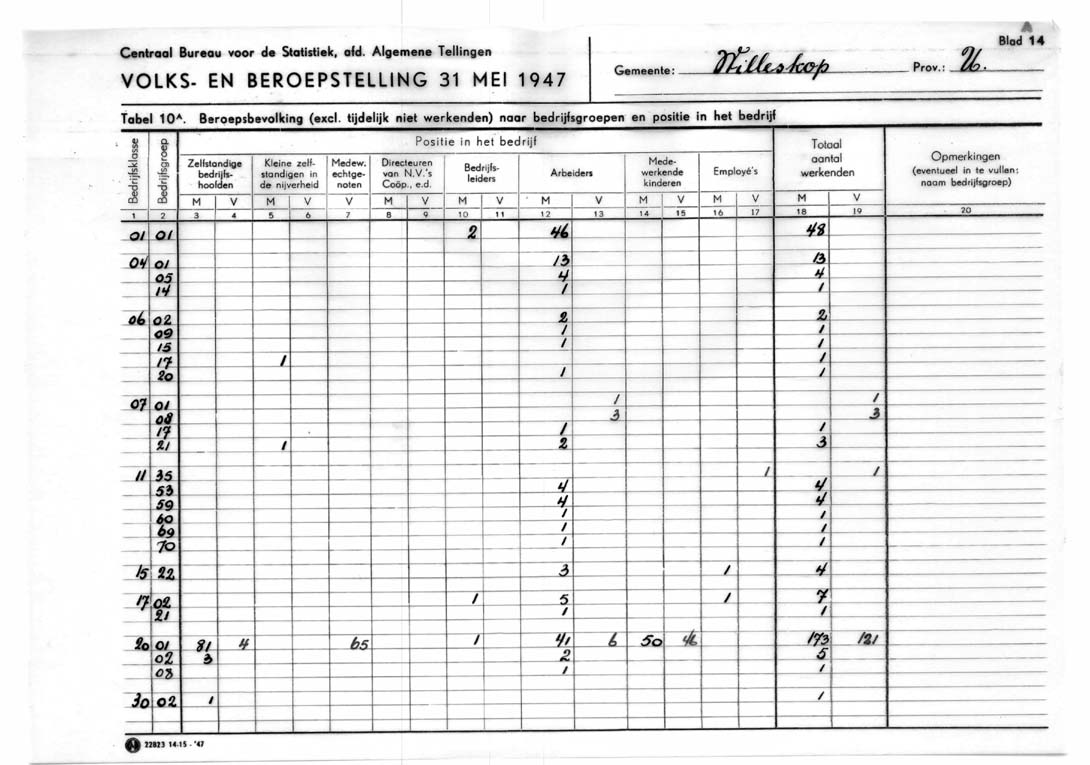 A
Blad 14
Centraal Bureau voor de Statistiek, afd. Algemene Tellingen
VOLKS- EN BEROEPSTELLING 31 MEI 1947
Gemeente: Willeskop Prov.: U.
Tabel 10A. Beroepsbevolking (excl. tijdelijk niet werkenden) naar bedrijfsgroepen en positie in het bedrijf
Bedrijfsklasse Bedrijfsgroep Positie in het bedrijf Totaal aantal werkenden Opmerkingen (eventueel in te vullen: naam bedrijfsgroep)
Zelfstandige bedrijfs- hoofden Kleine zelf- standigen in de nijverheid Medew. echtge- noten Directeuren van N.V.'s Coöp., e.d. Bedrijfs- leiders Arbeiders Mede- werkende kinderen Employé's
M V M V V M V M V M V M V M V M V
1 2 3 4 5 6 7 8 9 10 11 12 13 14 15 16 17 18 19 20
01 01 2 46 48
04 01 13 13
05 4 4
14 1 1
06 02 2 2
09 1 1
15 1 1
17 1 1
20 1 1
07 01 1 1
08 3 3
17 1 1
21 1 2 3
11 35 1 1
53 4 4
59 4 4
60 1 1
69 1 1
70 1 1
15 22 3 1 4
17 02 1 5 1 7
21 1 1
20 01 81 4 65 1 41 6 50 46 173 121
02 3 2 5
03 1 1
30 02 1 1
22823 14-15 - '47